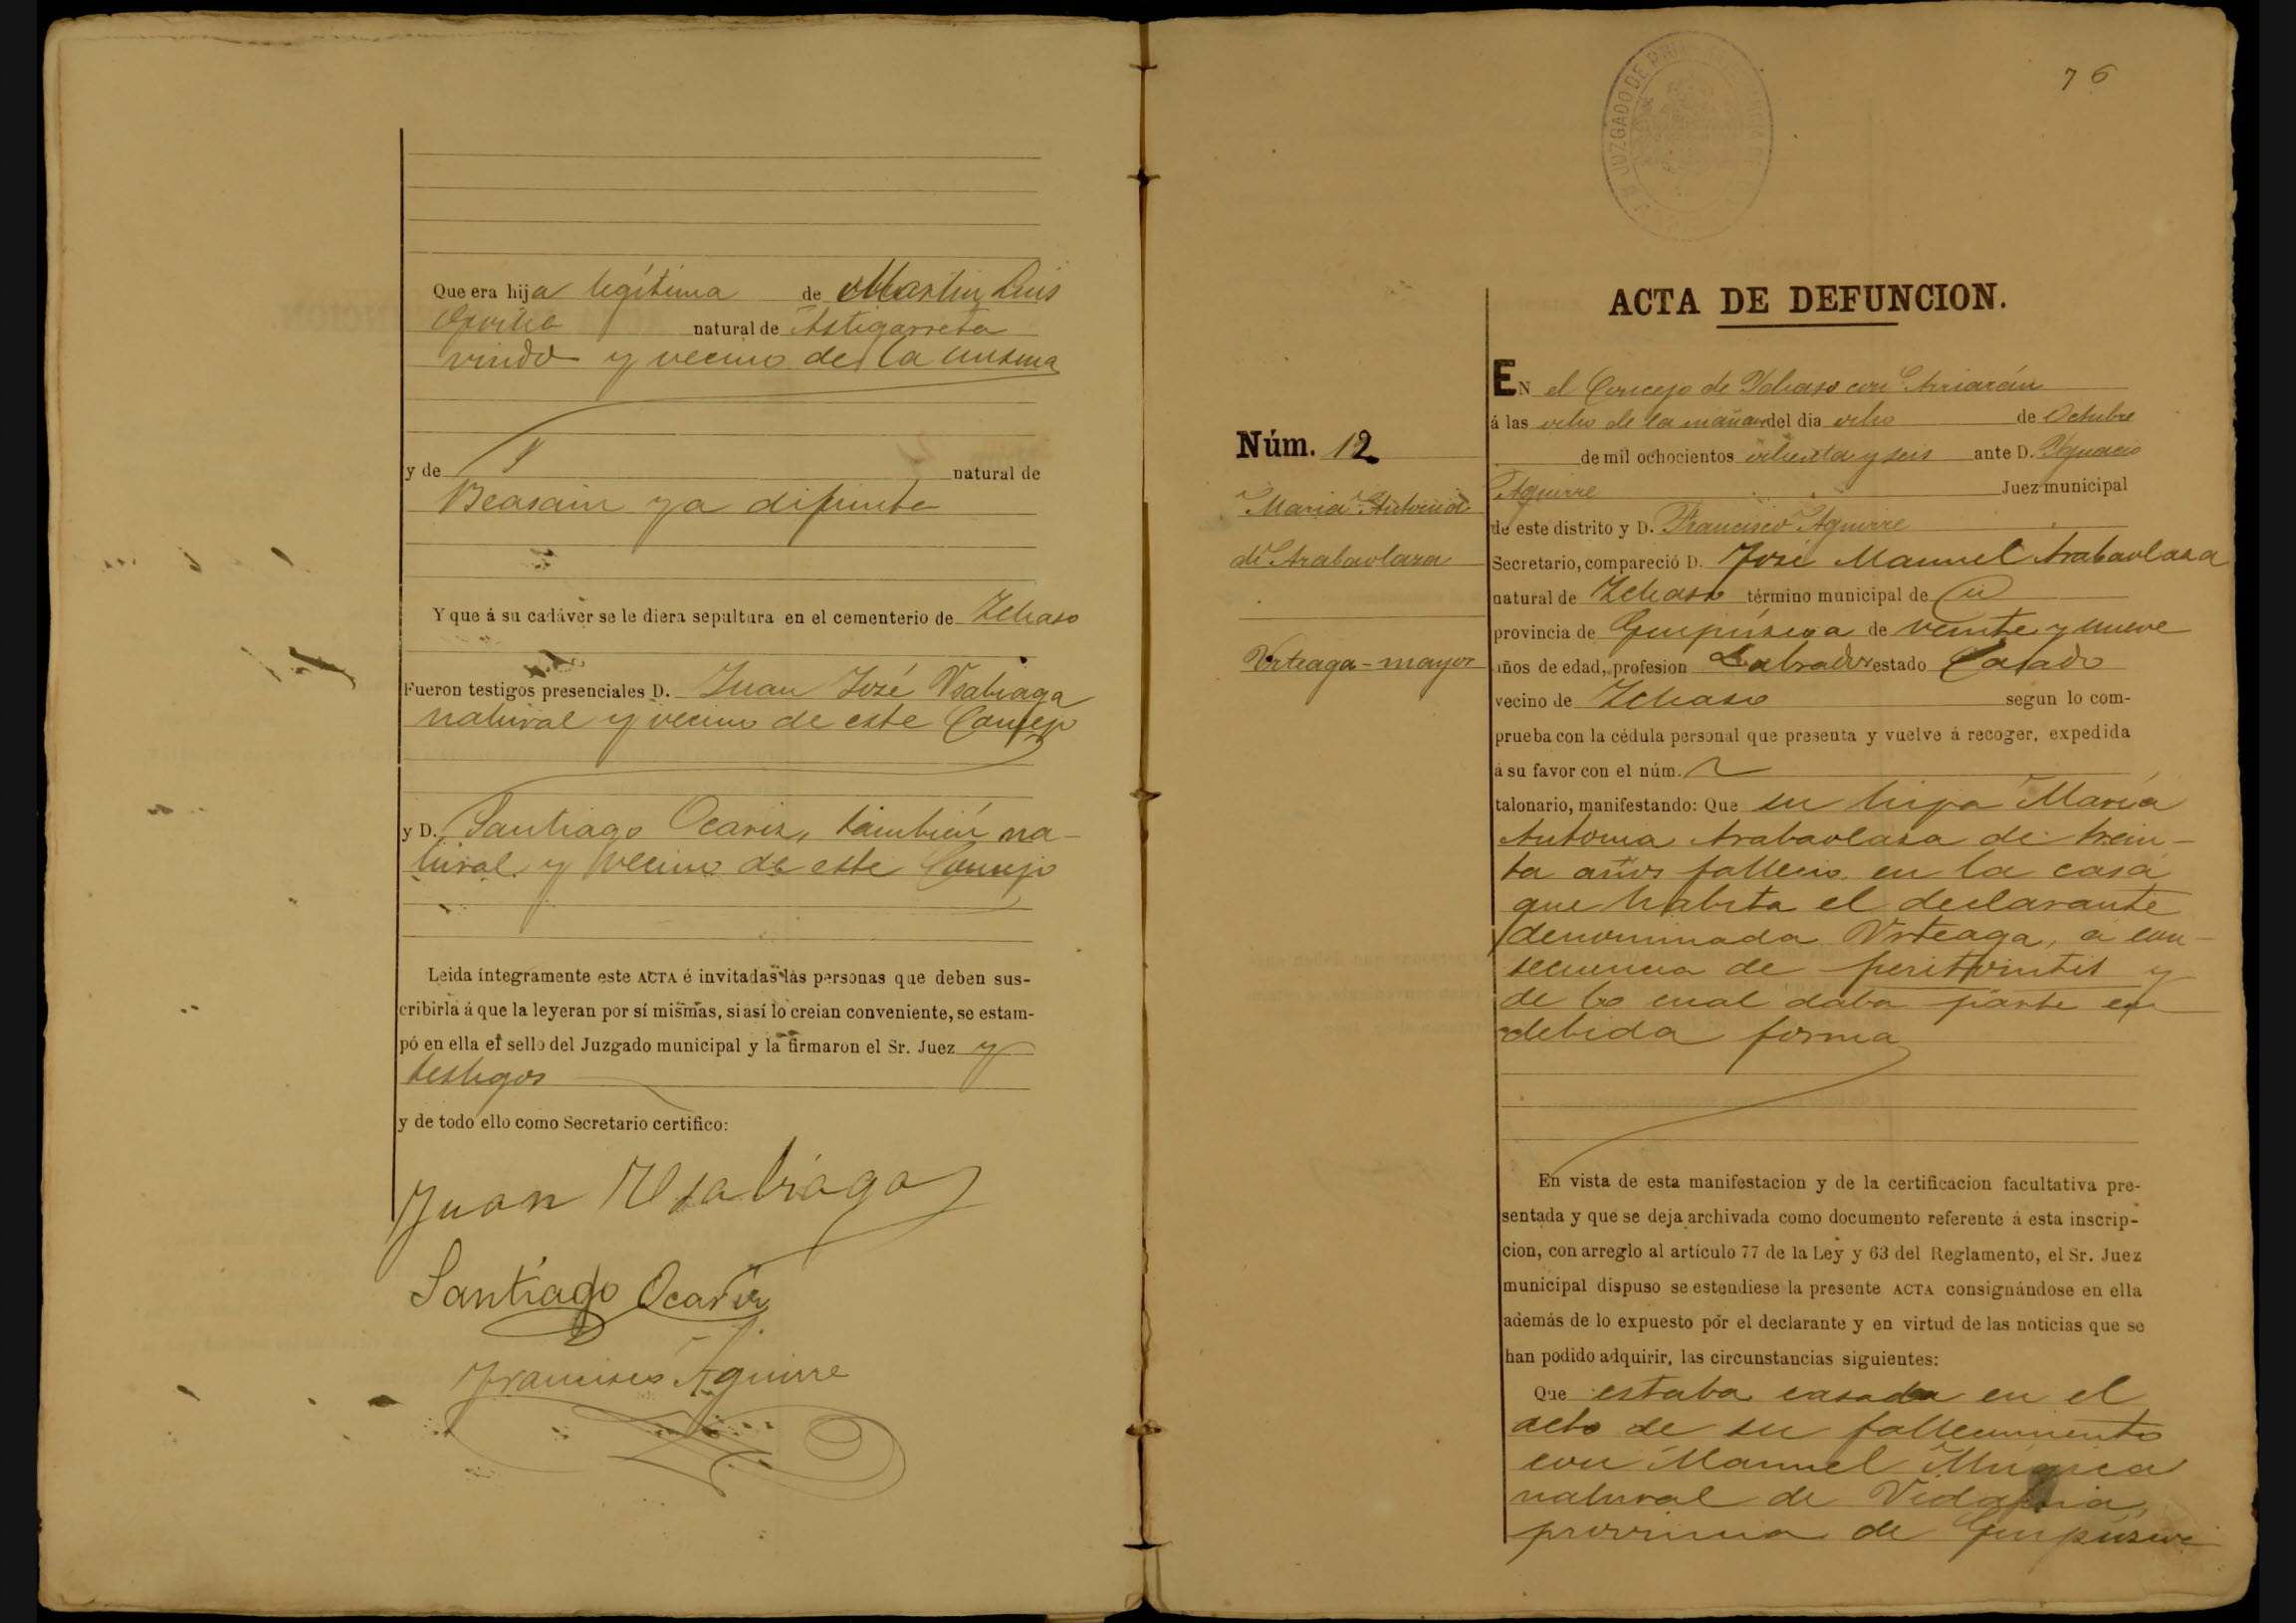 Que era hija legítima de Martin Luis
natural de Astigarreta
viudo y vecino de la misma
y de natural de
Beasain ya difunta
Y que á su cadáver se le diera sepultura en el cementerio de Ichaso
Fueron testigos presenciales D. Juan José Usabiaga
natural y vecino de este Concejo
y D. Santiago Ocariz, también na-
tural y vecino de este Concejo
Leida íntegramente este ACTA é invitadas las personas que deben sus-
cribirla á que la leyeran por sí mismas, si así lo creian conveniente, se estam-
pó en ella el sello del Juzgado municipal y la firmaron el Sr. Juez y
testigos
y de todo ello como Secretario certifico:
Juan Usabiaga
Santiago Ocariz
Francisco Aguirre
76
JUZGADO DE PRIMERA
ACTA DE DEFUNCION.
Núm. 12
Maria Antonia
de Arabaolaza
Urteaga-mayor
EN el Concejo de Ychaso con Arriarán
á las ocho de la mañana del dia ocho de Octubre
de mil ochocientos ochenta y seis ante D. Ygnacio
Aguirre Juez municipal
de este distrito y D. Francisco Aguirre
Secretario, compareció D. José Manuel Arabaolaza
natural de Ichaso término municipal de id
provincia de Guipúzcoa de veinte y nueve
años de edad, profesion Labrador estado Casado
vecino de Ichaso segun lo com-
prueba con la cédula personal que presenta y vuelve á recoger, expedida
á su favor con el núm.
talonario, manifestando: Que su hija María
Antonia Arabaolaza de trein-
ta años falleció en la casa
que habita el declarante
denominada Urteaga, a con-
secuencia de peritonitis y
de lo cual daba parte en
debida forma
En vista de esta manifestacion y de la certificacion facultativa pre-
sentada y que se deja archivada como documento referente á esta inscrip-
cion, con arreglo al artículo 77 de la Ley y 63 del Reglamento, el Sr. Juez
municipal dispuso se estendiese la presente ACTA consignándose en ella
además de lo expuesto por el declarante y en virtud de las noticias que se
han podido adquirir, las circunstancias siguientes:
Que estaba casada en el
acto de su fallecimiento
con Manuel Múgica
natural de Vidania,
provincia de Guipúzcoa